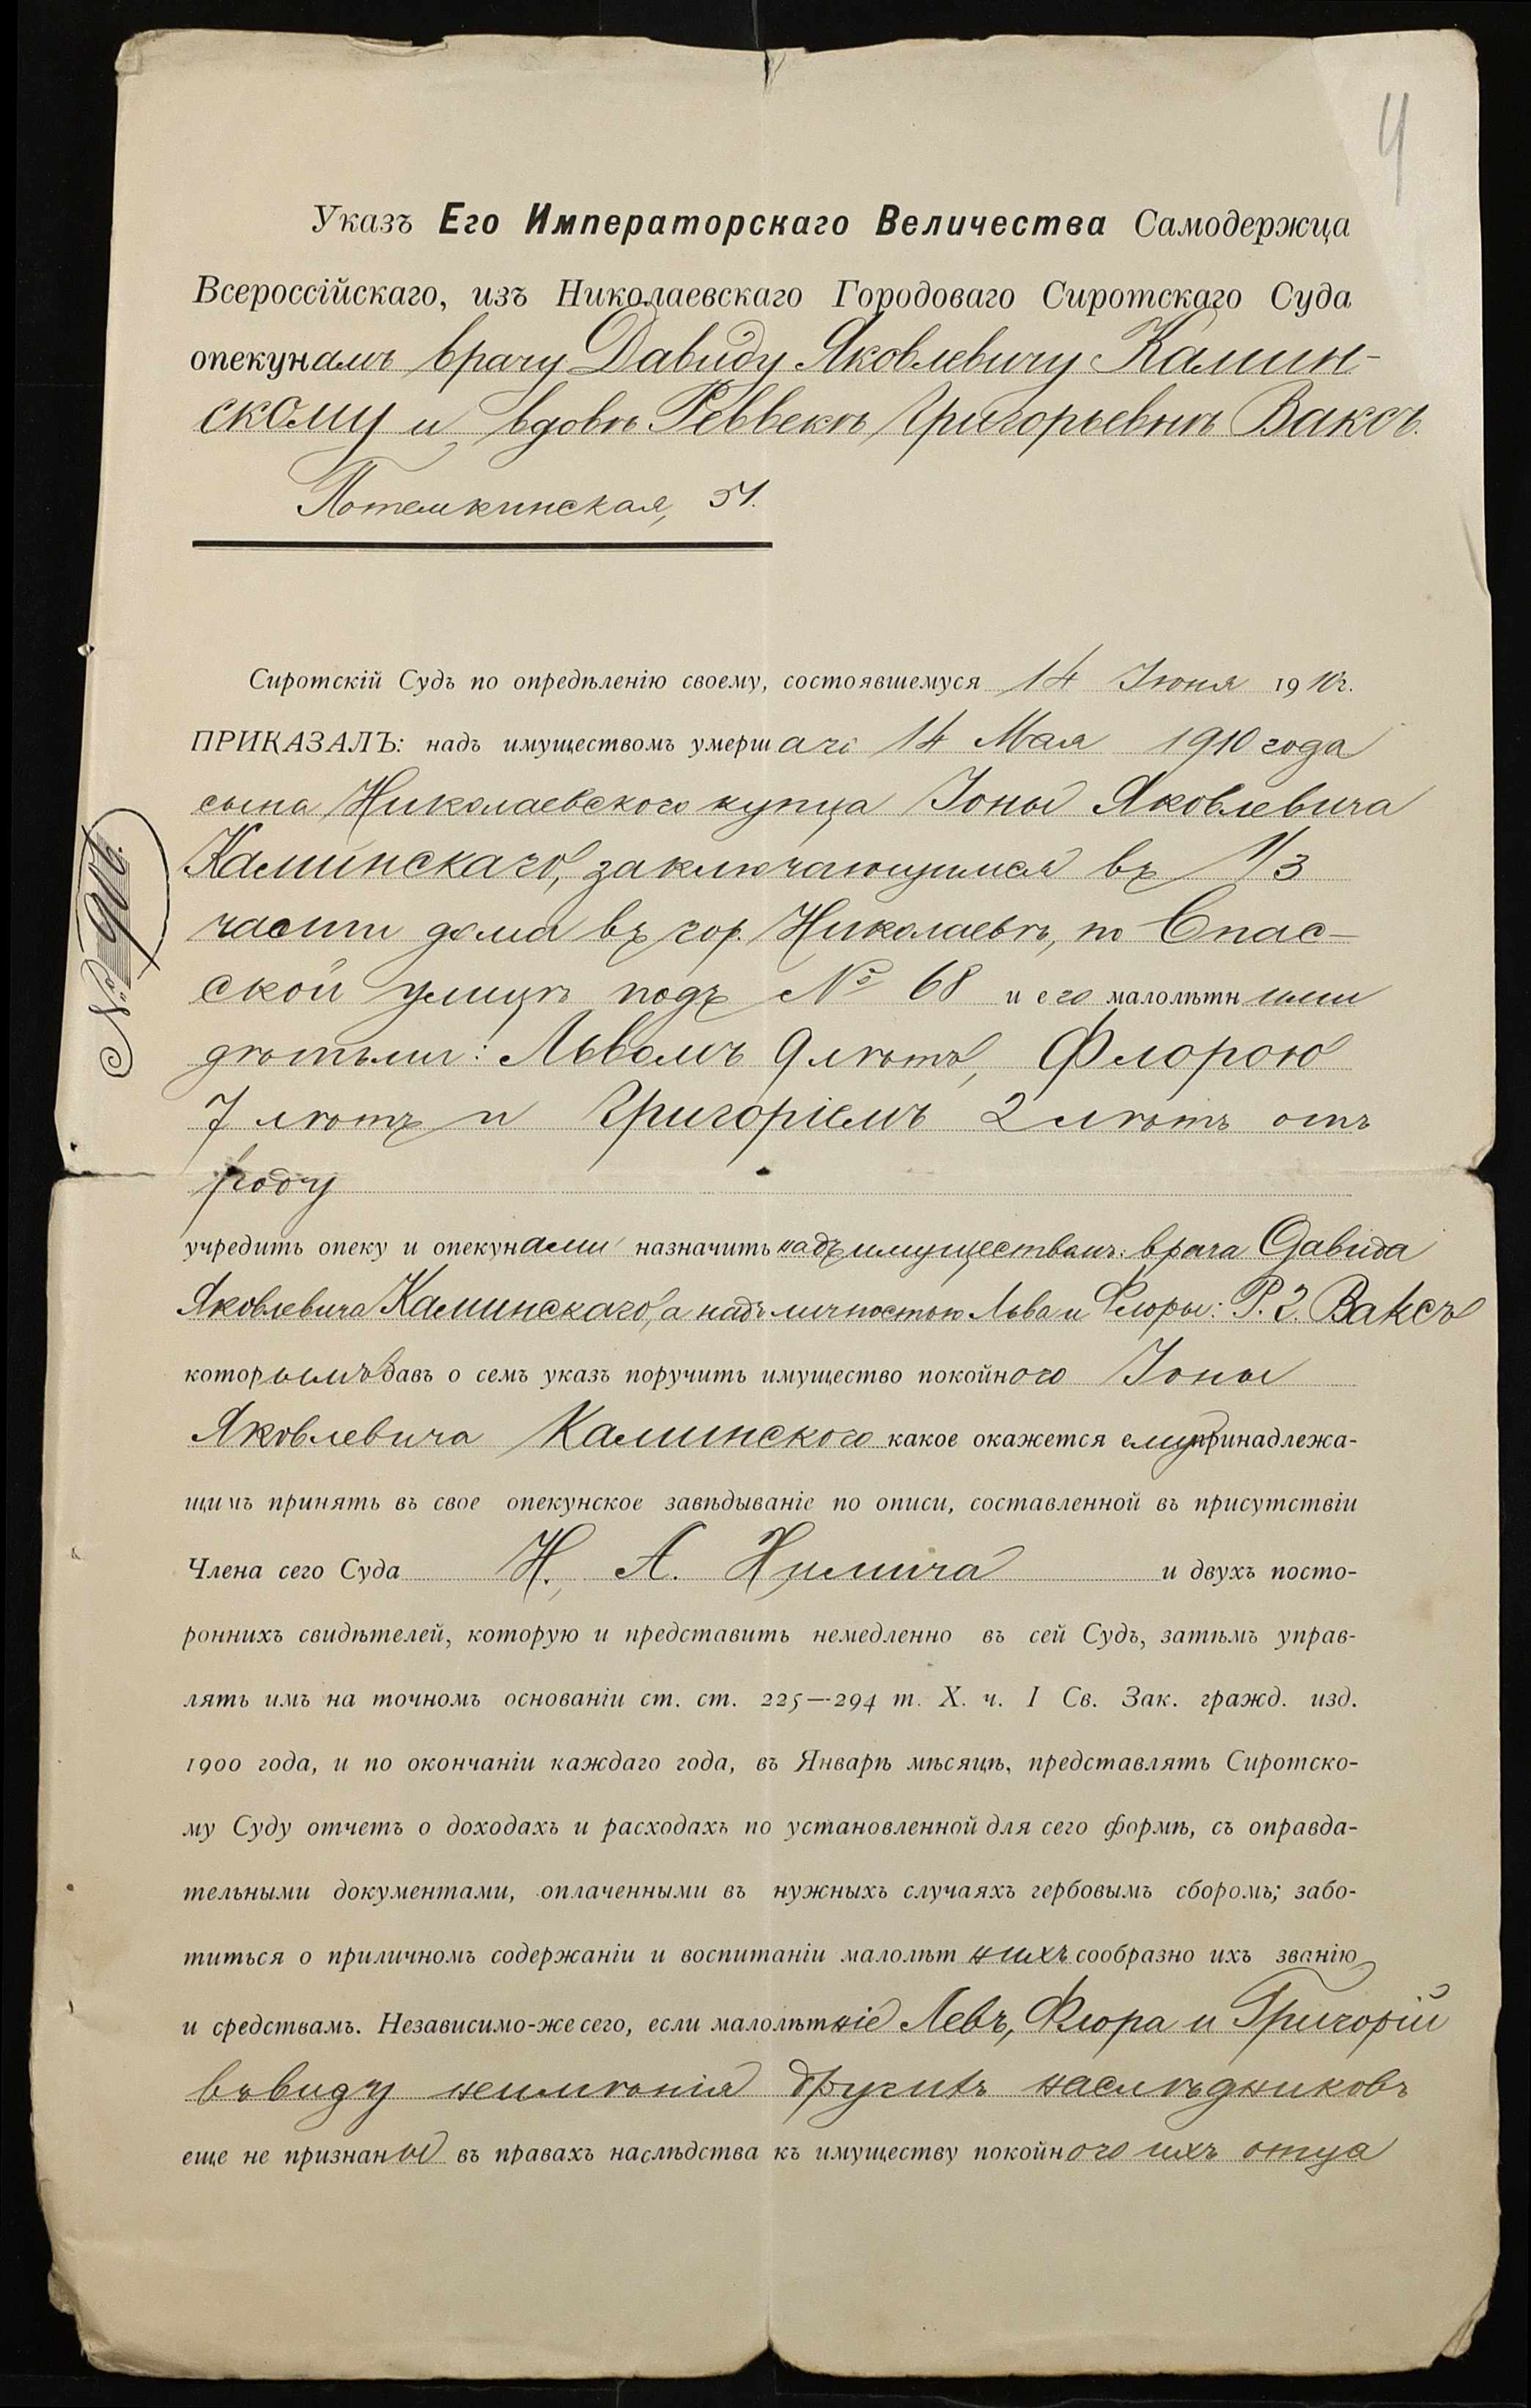 4
Указъ Его Императорскаго Величества Самодержца
Всероссійскаго, изъ Николаевскаго Городоваго Сиротскаго Суда
опекунамъ врачу Давиду Яковлевичу Камин-
скому и вдовѣ Реввекѣ Григорьевнѣ Ваксъ.
Потемкинская, 51.
Сиротскій Судъ по опредѣленію своему, состоявшемуся 14 Іюня 1910г.
ПРИКАЗАЛЪ: надъ имуществомъ умершаго 14 Мая 1910 года
сына Николаевского купца Іоны Яковлевича
Каминскаго, заключающимся въ 1/3
части дома въ гор. Николаевѣ, по Спас-
ской улицѣ подъ № 68 и его малолѣтними
дѣтьми: Львомъ 9 лѣтъ, Флорою
7 лѣтъ и Григоріемъ 2 лѣтъ отъ
роду
№ 916.
учредить опеку и опекунами назначить надъ имуществомъ: врача Давида
Яковлевича Каминскаго, а надъ личностью Льва и Флоры: Р. Г. Ваксъ
которымъ давъ о семъ указъ поручить имущество покойного Іоны
Яковлевича Каминского какое окажется ему принадлежа-
щимъ принять въ свое опекунское завѣдываніе по описи, составленной въ присутствіи
Члена сего Суда Н. А. и двухъ посто-
роннихъ свидѣтелей, которую и представить немедленно въ сей Судъ, затѣмъ управ-
лять имъ на точномъ основаніи ст. ст. 225—294 т. X. ч. I Св. Зак. гражд. изд.
1900 года, и по окончаніи каждаго года, въ Январѣ мѣсяцѣ, представлять Сиротско-
му Суду отчетъ о доходахъ и расходахъ по установленной для сего формѣ, съ оправда-
тельными документами, оплаченными въ нужныхъ случаяхъ гербовымъ сборомъ; забо-
титься о приличномъ содержаніи и воспитаніи малолѣтнихъ сообразно ихъ званію
и средствамъ. Независимо-же сего, если малолѣтніе Левъ, Флора и Григорій
въ виду неимѣнія другихъ наслѣдниковъ
еще не признаны въ правахъ наслѣдства къ имуществу покойного ихъ отца